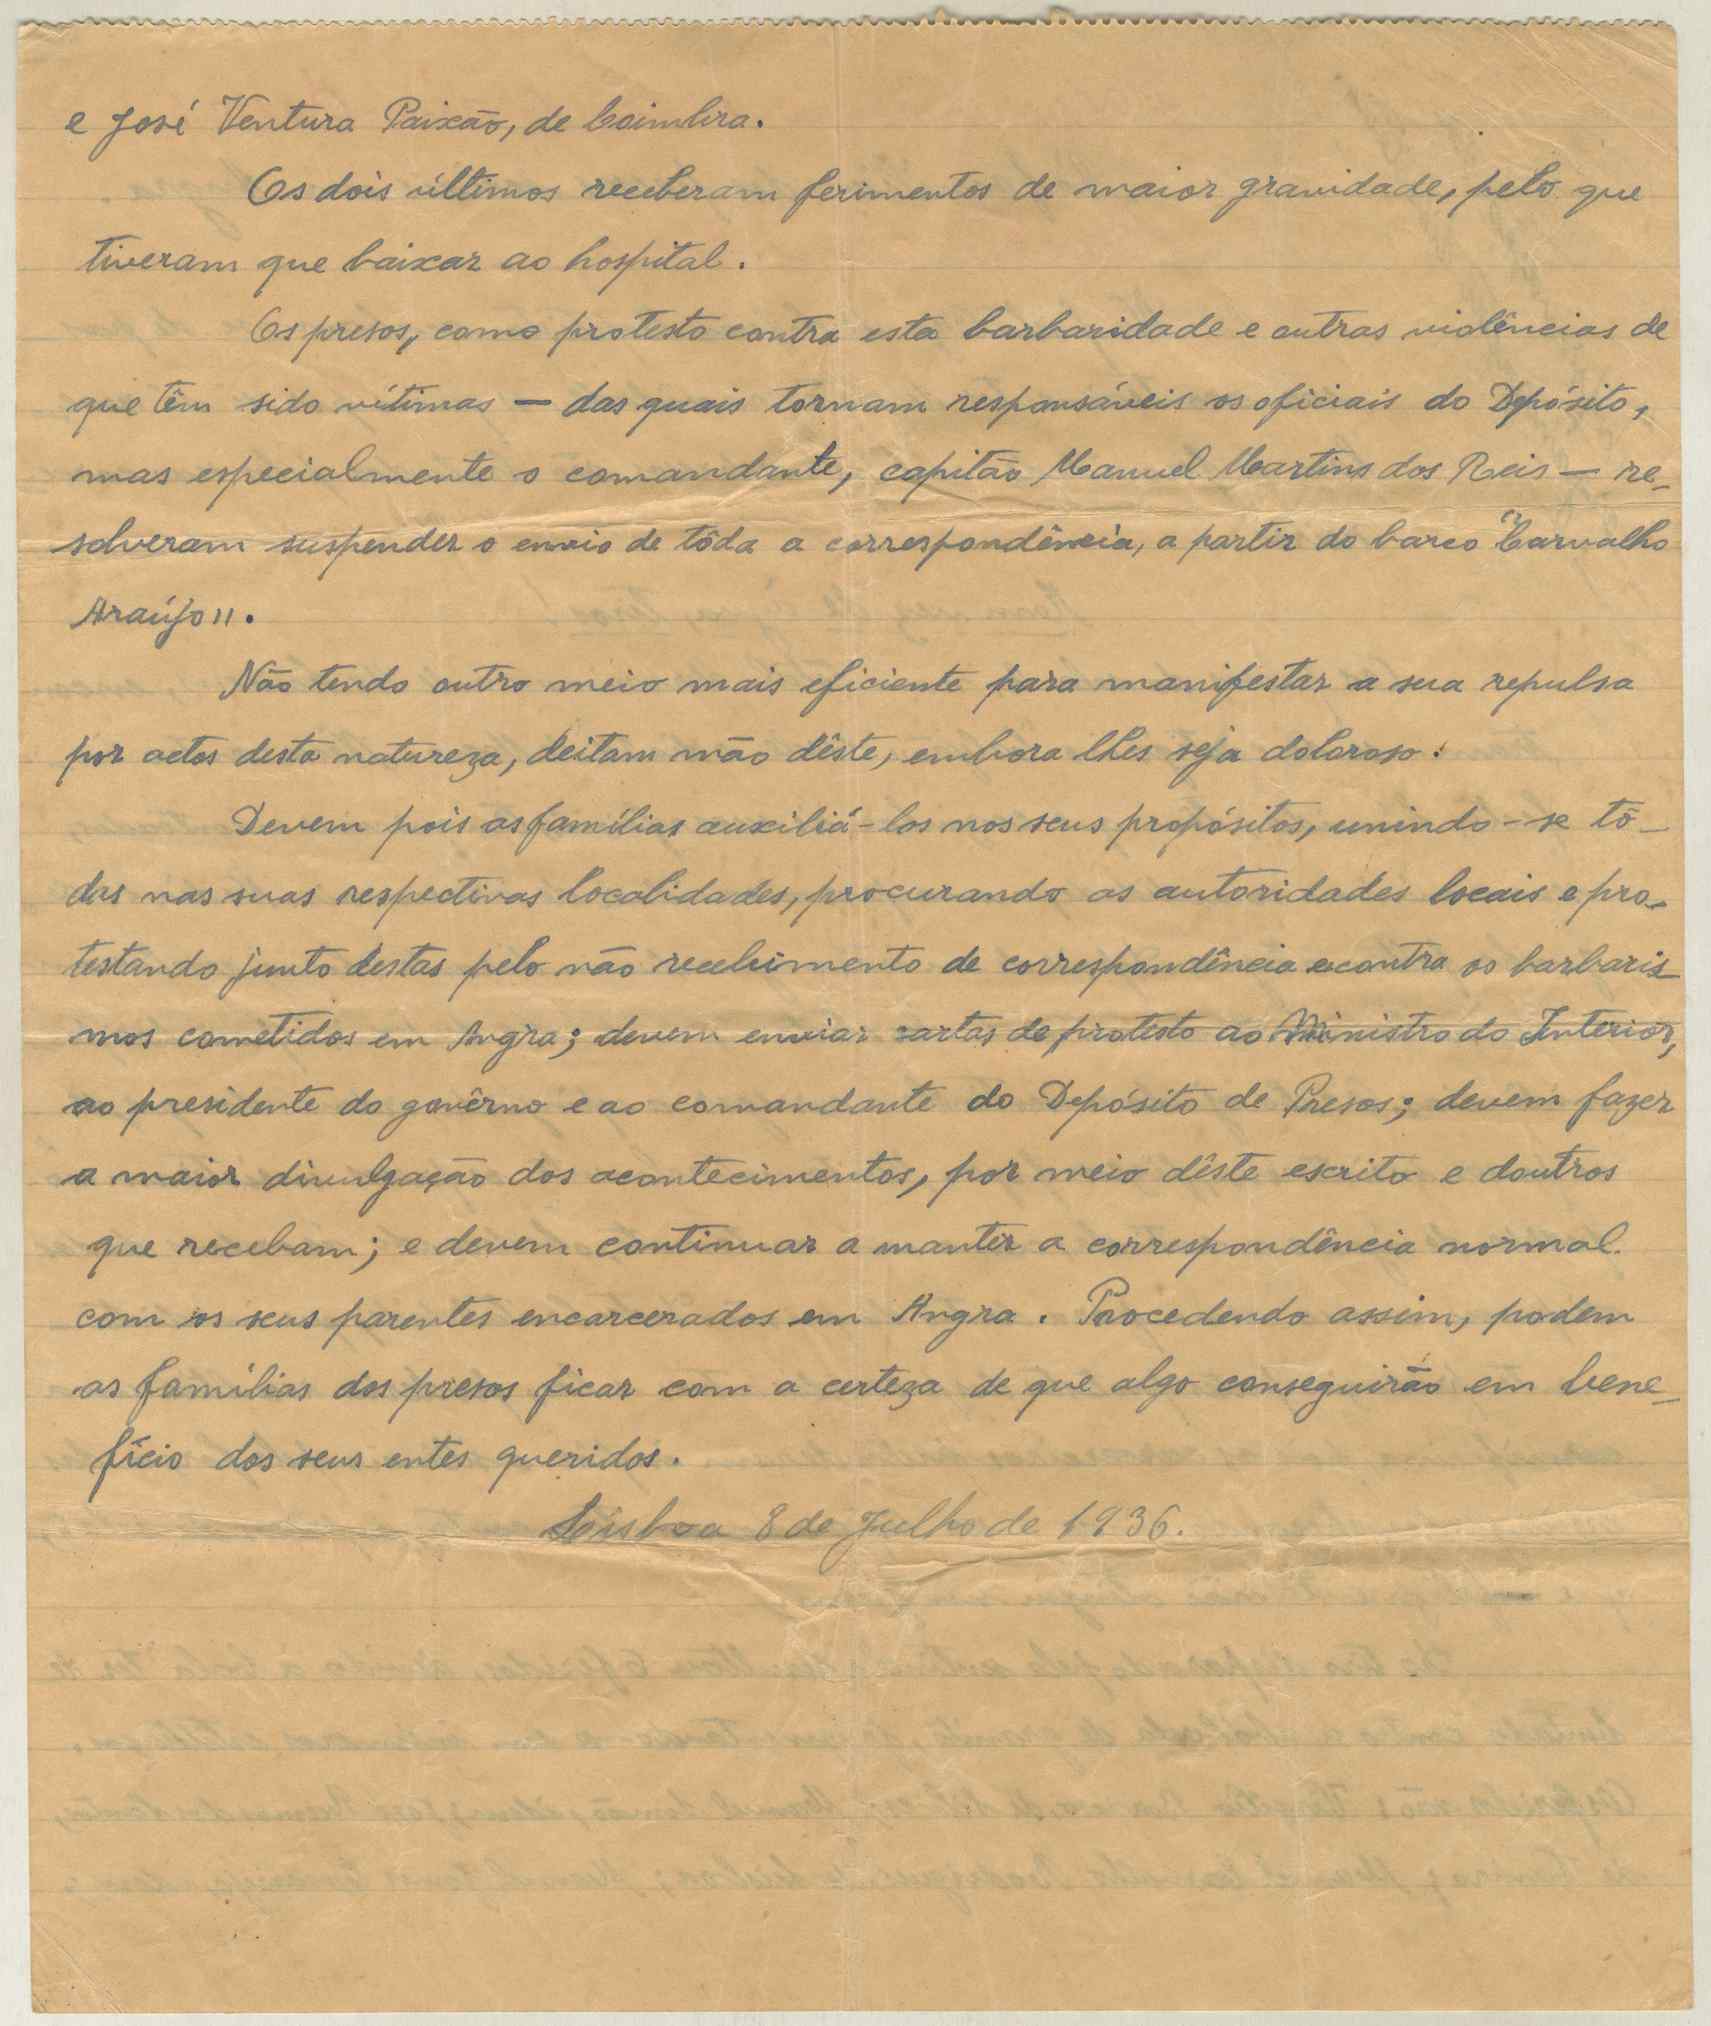 e José Ventura Paixão, de Coimbra.
Os dois últimos receberam ferimentos de maior gravidade, pelo que
tiveram que baixar ao hospital.
Os presos, como protesto contra esta barbaridade e outras violências de
que têm sido vítimas — das quais tornam responsáveis os oficiais do Depósito,
mas especialmente o comandante, capitão Manuel Martins dos Reis — re-
solveram suspender o envio de tôda a correspondência, a partir do barco "Carvalho
Araújo".
Não tendo outro meio mais eficiente para manifestar a sua repulsa
por actos desta natureza, deitam mão dêste, embora lhes seja doloroso:
Devem pois as famílias auxiliá-los nos seus propósitos, unindo-se tô-
das nas suas respectivas localidades, procurando as autoridades locais e pro-
testando junto destas pelo não recebimento de correspondência e contra os barbaris-
mos cometidos em Angra; devem enviar cartas de protesto ao Ministro do Interior,
ao presidente do govêrno e ao comandante do Depósito de Presos; devem fazer
a maior divulgação dos acontecimentos, por meio dêste escrito e doutros
que recebam; e devem continuar a manter a correspondência normal
com os seus parentes encarcerados em Angra. Procedendo assim, podem
as famílias dos presos ficar com a certeza de que algo conseguirão em bene-
fício dos seus entes queridos.
Lisboa 8 de Julho de 1936.